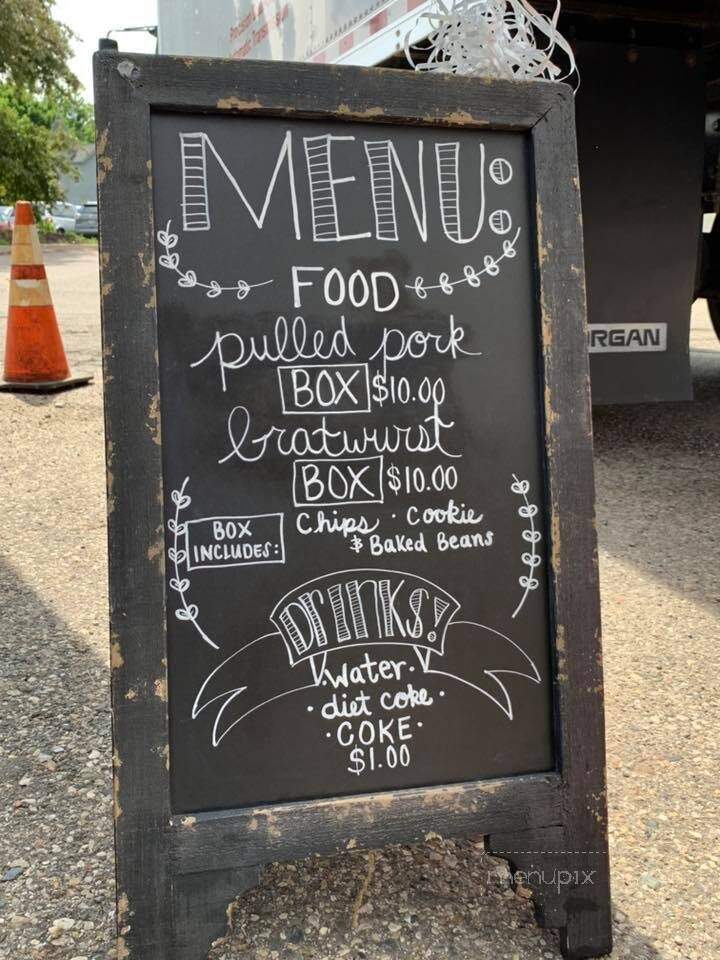 MENU:
FOOD
pulled pork
BOX $10.00
bratwurst
BOX $10.00
BOX INCLUDES:
Chips · Cookie
& Baked Beans
DRINKS!
·Water·
·diet coke·
·COKE·
$1.00
RGAN
menupix